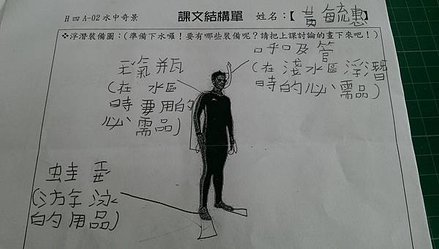 H四A-02水中奇景 課文結構單 姓名:【黃毓惠】
❖浮潛裝備圖:(準備下水囉!要有哪些裝備呢?請把上課討論的畫下來吧!)
氧氣瓶
(在水區
時要用的
必需品)
呼及管
(在淺水區浮潛
時的必需品)
蛙
(
的用品)